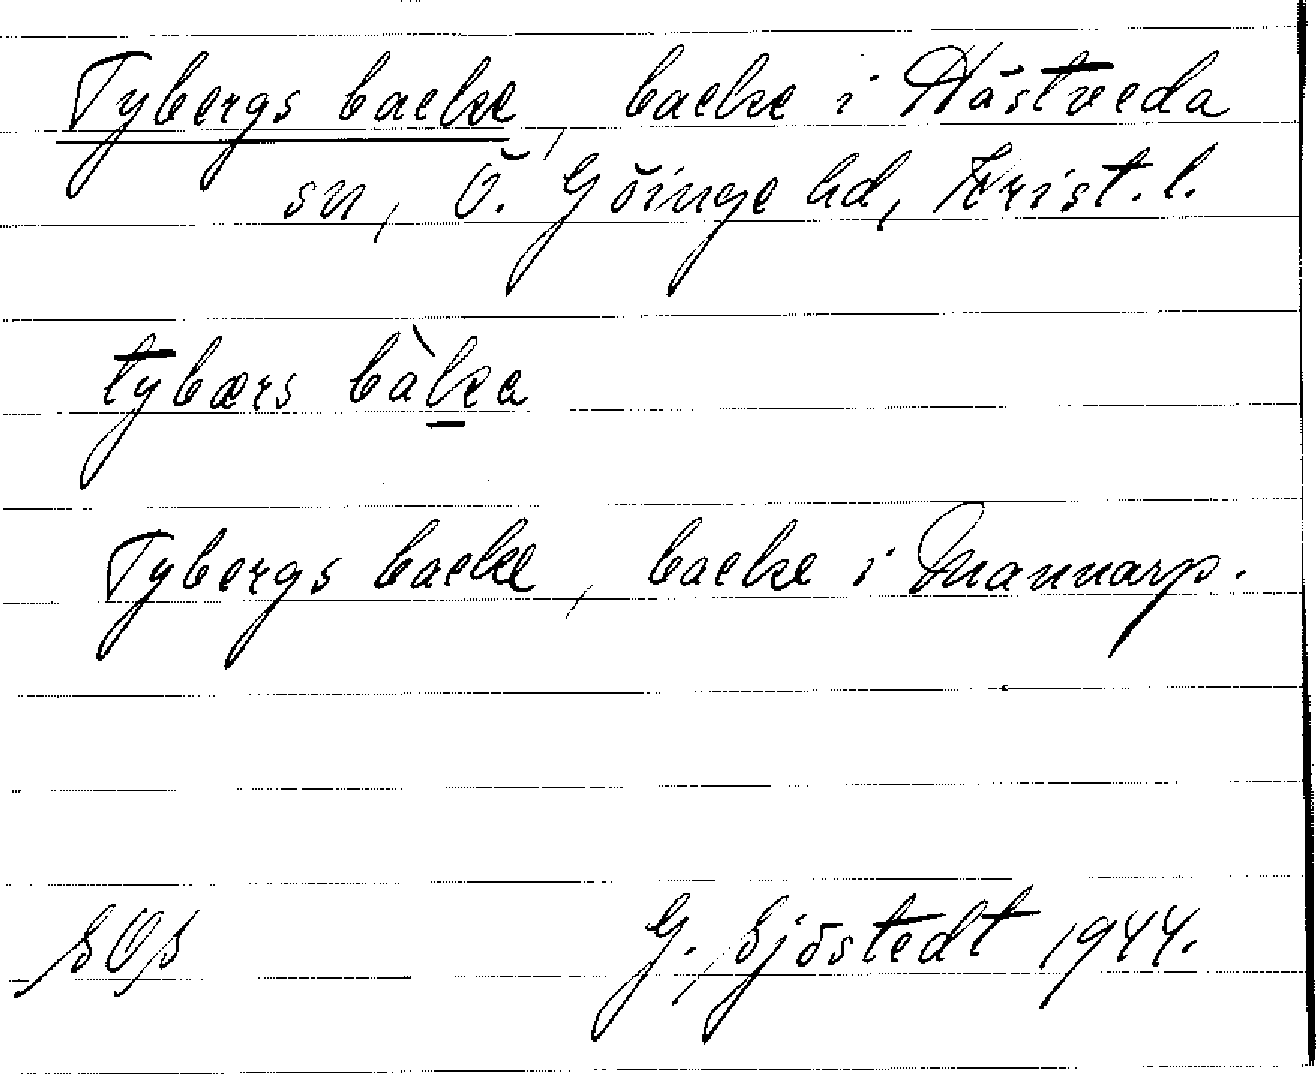 Tybergs backe, backe i Hästveda
sn, Ö. Göinge hd, Krist. l.
tybærs bàka
Tybergs backe, backe i Mannarp.
SOS G. Sjöstedt 1944.